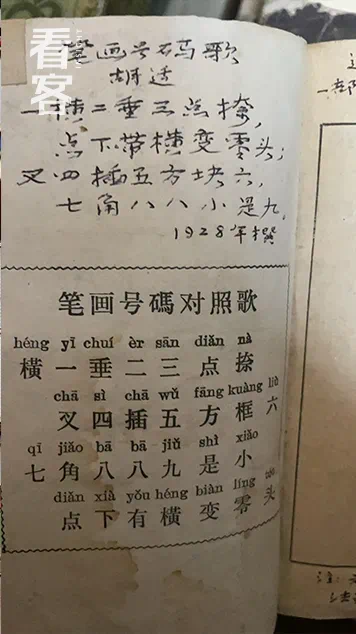 看客
笔画号码歌
胡适
一横二垂三点捺,
点下带横变零头;
叉四插五方块六,
七角八八小是九,
1928年撰
笔画号碼对照歌
héng yī chuí èr sān diǎn nà
橫一垂二三点捺
chā sì chā wǔ fāng kuàng liù
叉四插五方框六
qī jiǎo bā bā jiǔ shì xiǎo
七角八八九是小
diǎn xià yǒu héng biàn líng
点下有橫变零头
注: